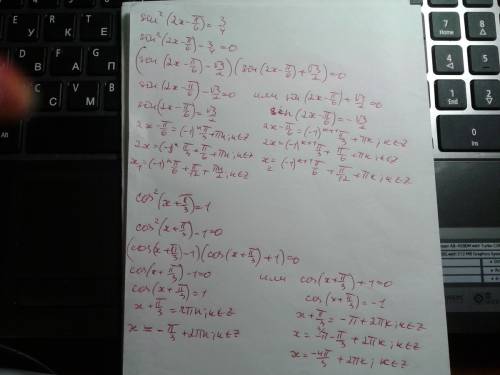 sin²(2x-π/6)=3/4
sin²(2x-π/6)-3/4=0
(sin(2x-π/6)-√3/2)(sin(2x-π/6)+√3/2)=0
sin(2x-π/6)-√3/2=0 или sin(2x-π/6)+√3/2=0
sin(2x-π/6)=√3/2 sin(2x-π/6)=-√3/2
2x-π/6=(-1)ⁿπ/3+πn; n∈Z 2x-π/6=(-1)^(k+1)π/3+πk, k∈Z
2x=(-1)ⁿπ/3+π/6+πn; n∈Z 2x=(-1)^(k+1)π/3+π/6+πk; k∈Z
x₁=(-1)ⁿπ/6+π/12+πn/2; n∈Z x₂=(-1)^(k+1)π/6+π/12+πk; k∈Z
cos²(x+π/3)=1
cos²(x+π/3)-1=0
(cos(x+π/3)-1)(cos(x+π/3)+1)=0
cos(x+π/3)-1=0 или cos(x+π/3)+1=0
cos(x+π/3)=1 cos(x+π/3)=-1
x+π/3=2πn; n∈Z x+π/3=-π+2πk; k∈Z
x=-π/3+2πn; n∈Z x=-π-π/3+2πk; k∈Z
x=-4π/3+2πk; k∈Z